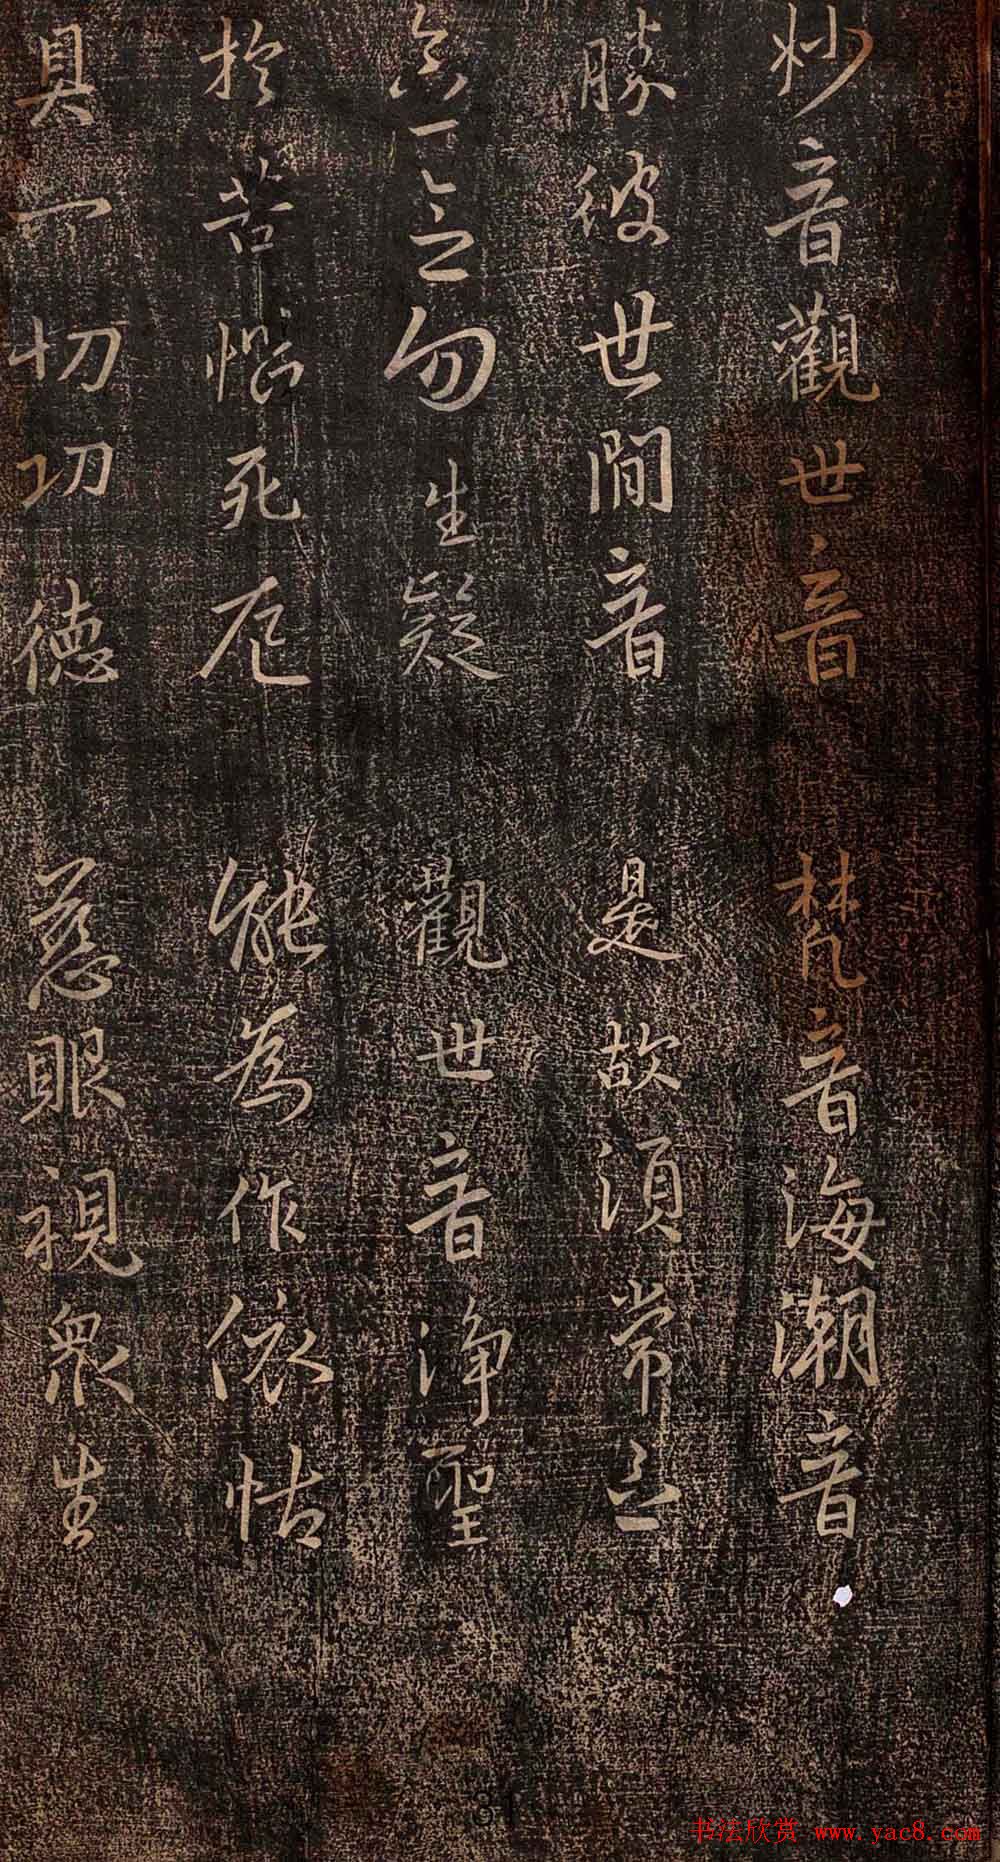 妙音觀世音 梵音海潮音
勝彼世間音 是故須常念
念念勿生疑 觀世音淨聖
於苦惱死厄 能為作依怙
具一切功德 慈眼視眾生
31
书法欣赏 www.yac8.com